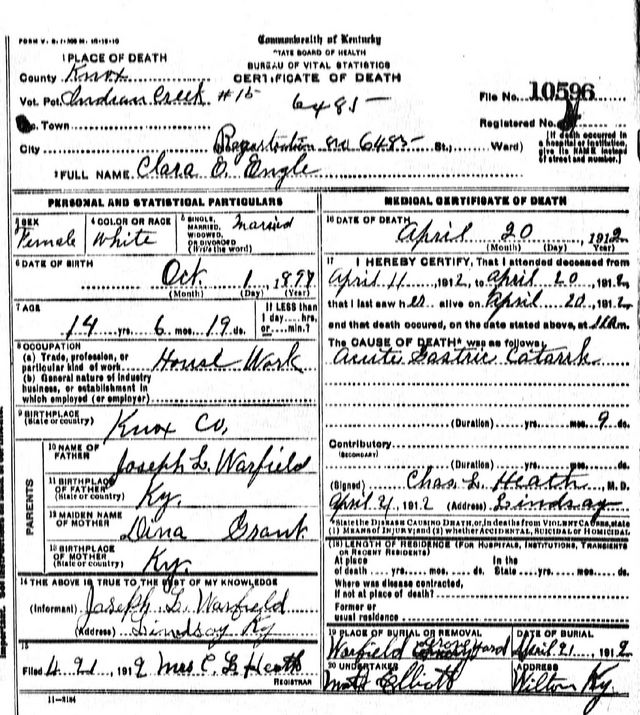 FORM V. S. 1-
Commonwealth of Kentucky
STATE BOARD OF HEALTH
BUREAU OF VITAL STATISTICS
CERTIFICATE OF DEATH
1 PLACE OF DEATH
County Knox
Vot. Pct. Indian Creek #15
6485
File No. 10596
Registered No.
Inc. Town
City 6485 St.; Ward)
[If death occurred in a hospital or institution, give its NAME instead of street and number.]
2 FULL NAME Clara E. Engle
PERSONAL AND STATISTICAL PARTICULARS
3 SEX Female
4 COLOR OR RACE White
5 SINGLE, MARRIED, WIDOWED, OR DIVORCED (Write the word) Married
6 DATE OF BIRTH Oct 1, 1897
(Month) (Day) (Year)
7 AGE 14 yrs. 6 mos. 19 ds.
If LESS than 1 day....hrs. or....min.?
8 OCCUPATION
(a) Trade, profession, or particular kind of work House Work
(b) General nature of industry business, or establishment in which employed (or employer)
9 BIRTHPLACE (State or country) Knox Co,
PARENTS
10 NAME OF FATHER Joseph L. Warfield
11 BIRTHPLACE OF FATHER (State or country) Ky.
12 MAIDEN NAME OF MOTHER Dina Grant
13 BIRTHPLACE OF MOTHER (State or country) Ky.
14 THE ABOVE IS TRUE TO THE BEST OF MY KNOWLEDGE
(Informant) Joseph L. Warfield
(Address) Lindsay Ky
15
Filed 4 21, 1912 Mrs C L Heath
REGISTRAR
11-3184
MEDICAL CERTIFICATE OF DEATH
16 DATE OF DEATH April 20 1912
(Month) (Day) (Year)
17 I HEREBY CERTIFY, That I attended deceased from
April 11, 1912, to April 20, 1912,
that I last saw her alive on April 20, 1912,
and that death occured, on the date stated above, at m.
The CAUSE OF DEATH* was as follows:
Acute Gastric Catarrh
(Duration) yrs. mos. 9 ds.
Contributory
(SECONDARY)
(Duration) yrs. mos. ds.
(Signed) Chas. L. Heath, M. D.
April 21, 1912 (Address) Lindsay
*State the DISEASE CAUSING DEATH, or, in deaths from VIOLENT CAUSES, state (1) MEANS OF INJURY; and (2) whether ACCIDENTAL, SUICIDAL or HOMICIDAL.
(18) LENGTH OF RESIDENCE (FOR HOSPITALS, INSTITUTIONS, TRANSIENTS OR RECENT RESIDENTS)
At place of death yrs. mos. ds. In the State yrs. mos. ds.
Where was disease contracted, if not at place of death?
Former or usual residence
19 PLACE OF BURIAL OR REMOVAL Warfield Yard
DATE OF BURIAL April 21, 1912
20 UNDERTAKER Matt Elliott
ADDRESS Wilton Ky.